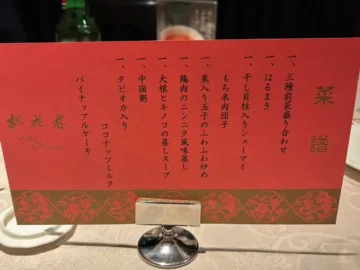 菜譜
一、三種前菜盛り合わせ
一、はるまき
一、干し貝柱入りシューマイ
もち米肉団子
一、巣入り玉子のふわふわ炒め
一、鶏肉のニンニク風味蒸し
一、大根とキノコの蒸しスープ
一、中国粥
一、タピオカ入り
ココナッツミルク
パイナップルケーキ